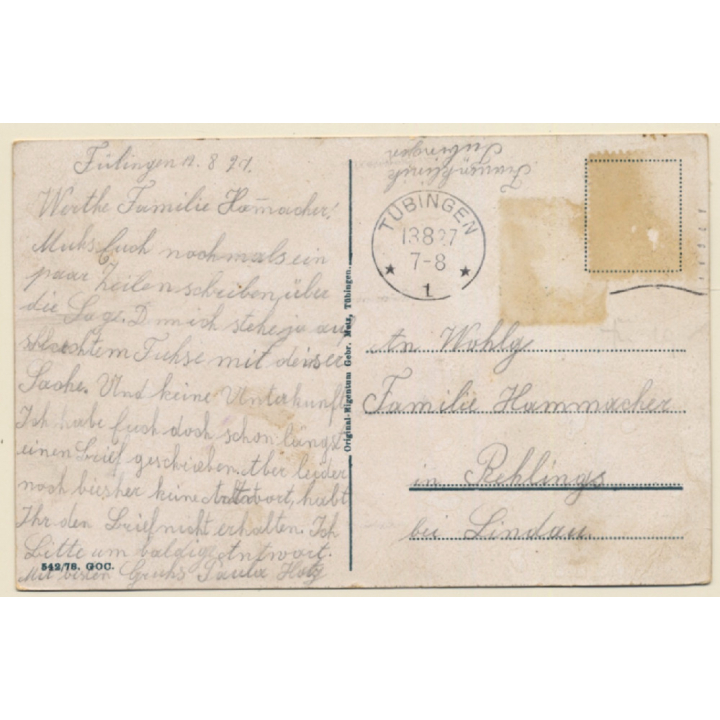 Tübingen 12. 8 27.
Werthe Familie Ham̄acher!
Muhs Euch nochmals ein
paar Zeilen schreiben, über
die Lage. D mich stehe ja auf
schlechtem Fuhse mit dieser
Sache. Und keine Unterkunft
Ich habe Euch doch schon längst
einen Brief geschrieben. Aber leider
noch biesher keine Antwort, habt
Ihr den Brief nicht erhalten. Ich
Bitte um baldige Antwort.
Mit besten Gruhs Paula Hotz
542/78. GOC.
Original-Eigentum Gebr. Metz, Tübingen.
Frauenklinik
Tübingen
TÜBINGEN
13.8.27
7-8
* 1 *
An Wohlg
Familie Hammacher
in Rehlings
bei Lindau